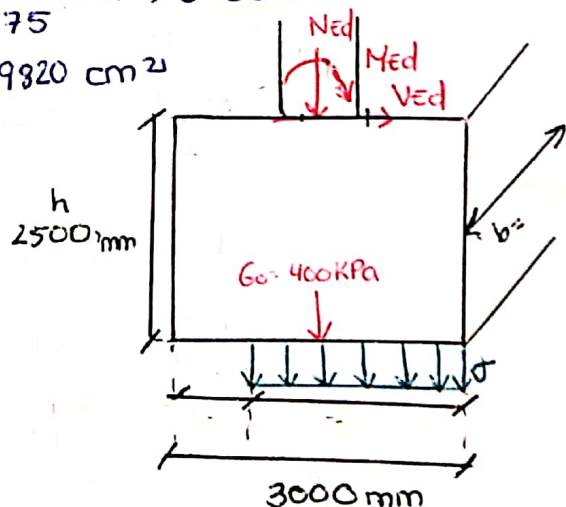 75
9820 cm²
NEd
MEd
VEd
h
2500 mm
b=
G₀= 400KPa
σ
3000mm